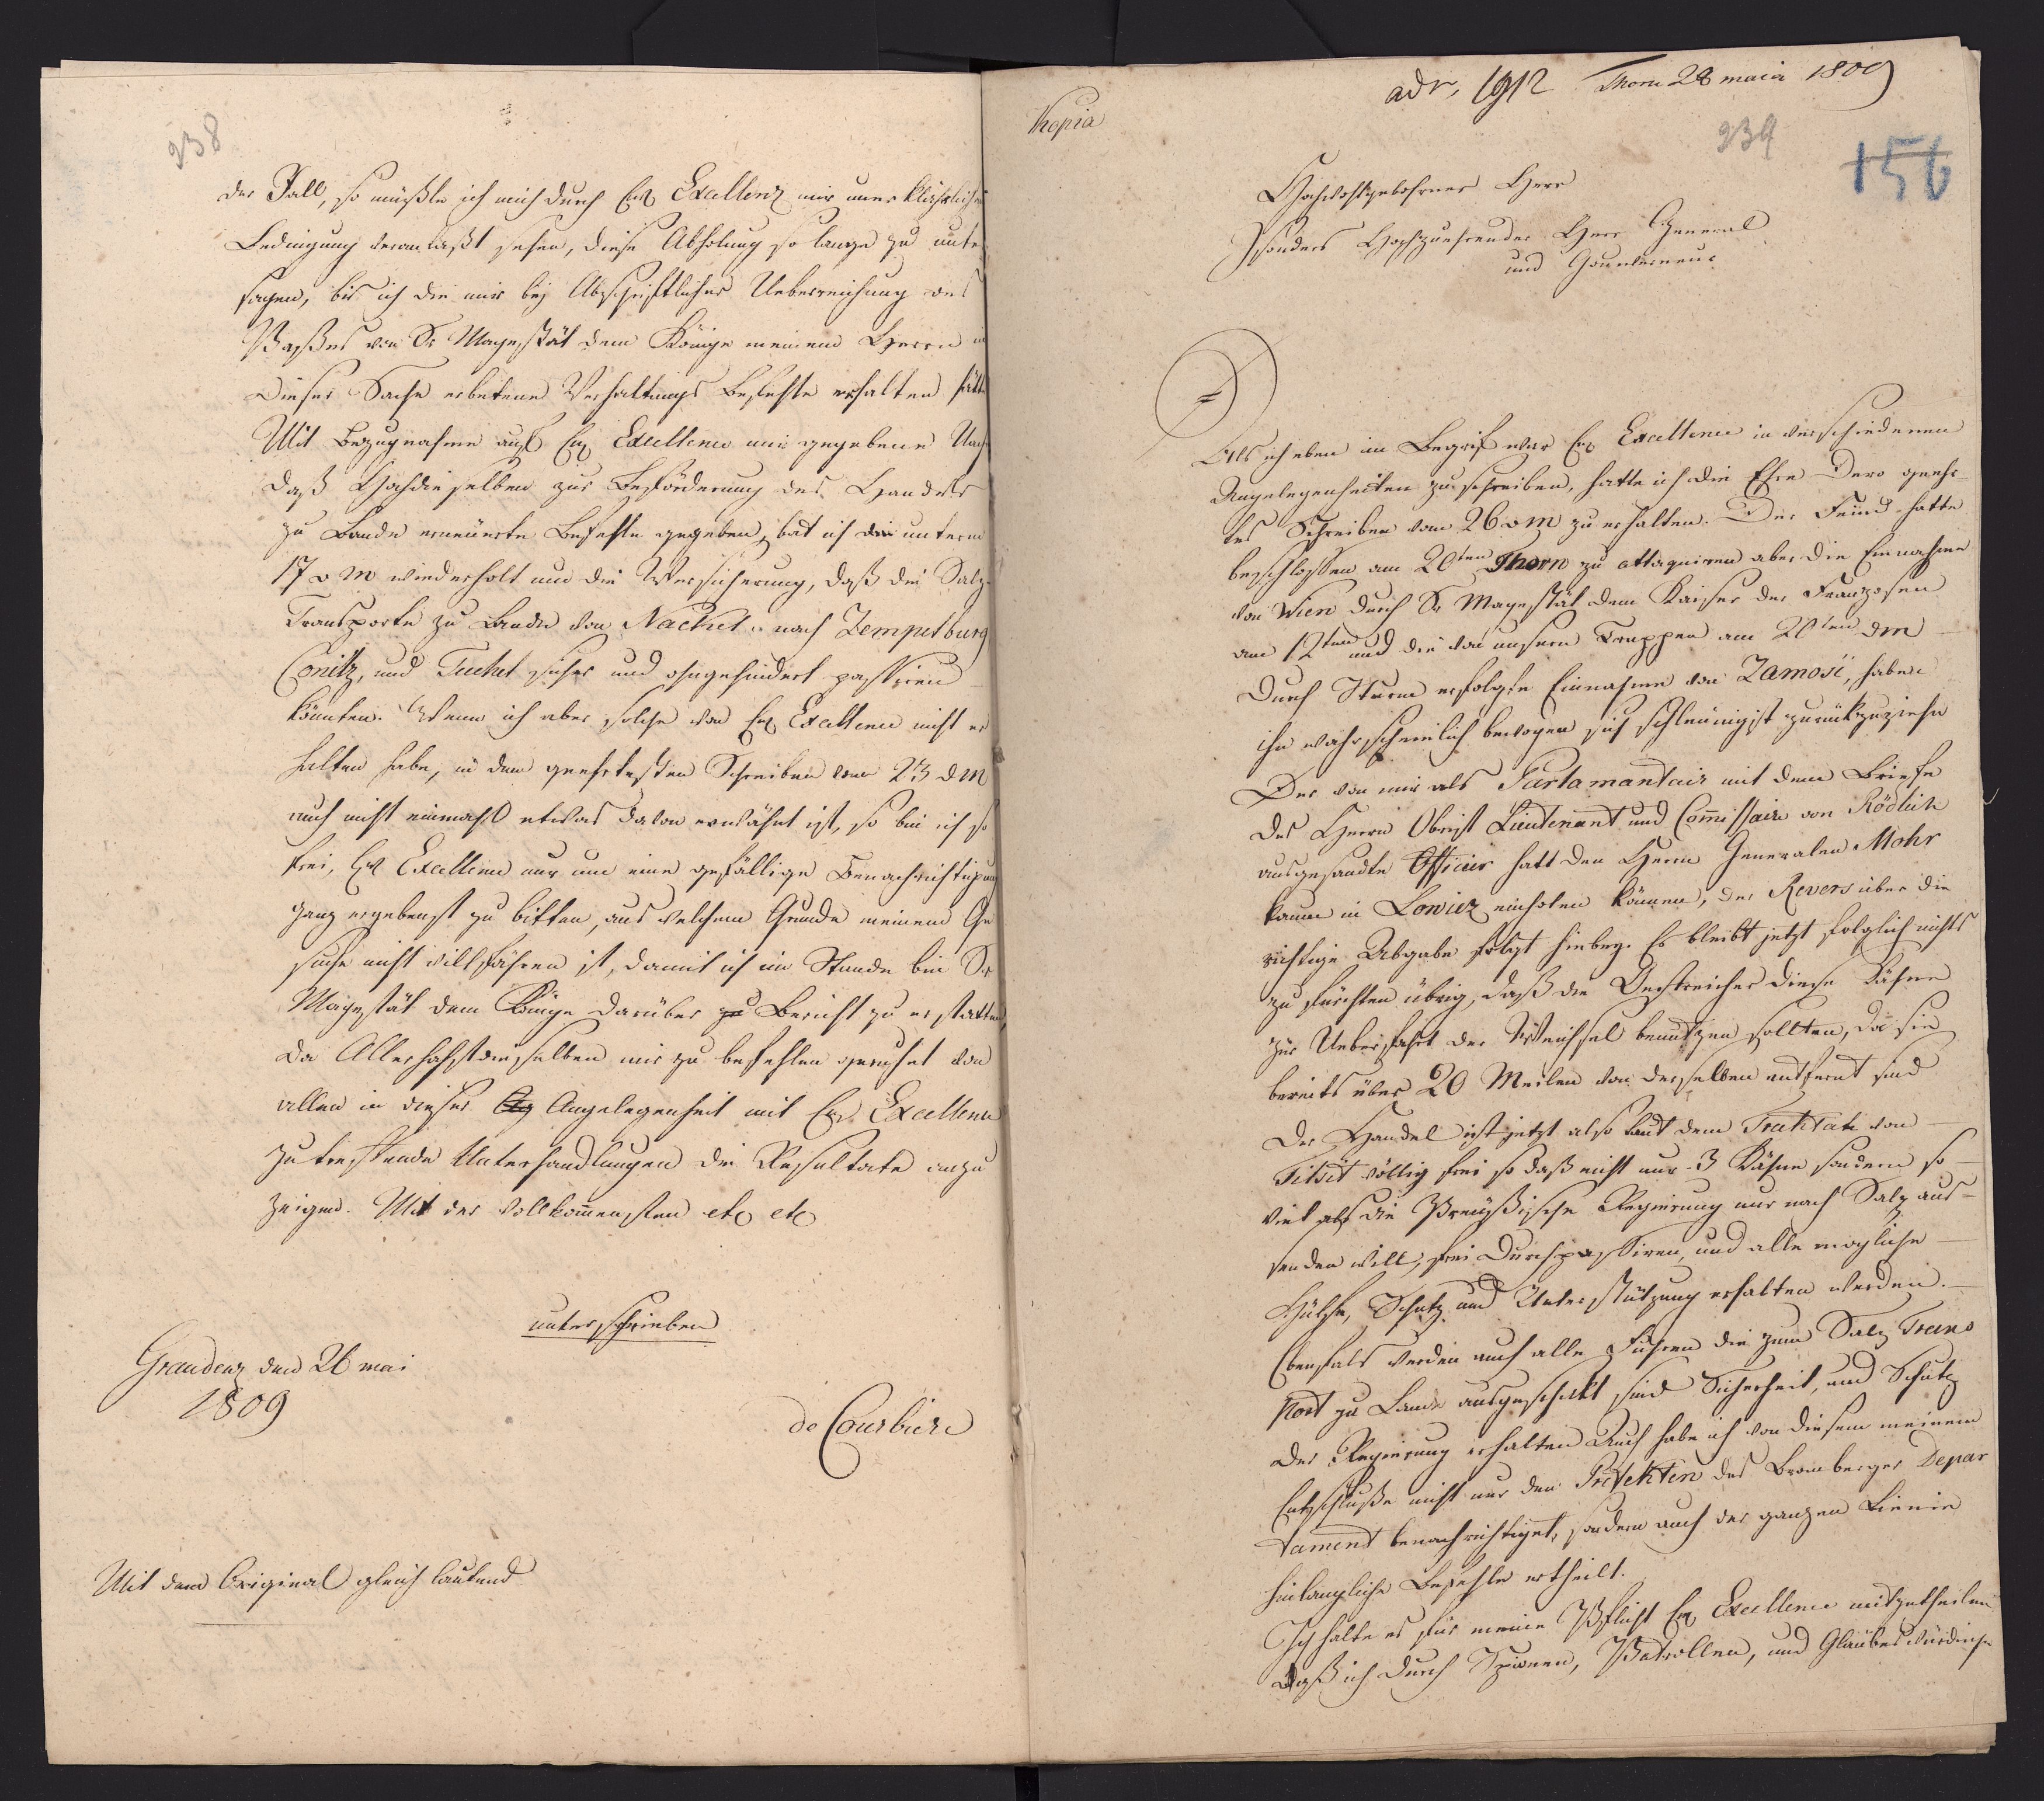 238
der Fall, so müßte ich mich durch Ew Excellenz mir unerklährliche
Bedingung veranlaßt sehen, diese Abholung so lange zu unter
sagen, bis ich die mir bey Abschriftlicher Ueberreichung des
Paßes von Sr Mayestät dem Könige meinem Herrn in
dieser Sache erbetene Verhaltungs Befehle erhalten hätte
Mit Bezugnahme auf Ew Excellence mir gegebene
daß Hochdieselben zur Beförderung des Handels
zu Lande erneuerte Befehle gegeben, bat ich unterm
17 v M wiederholt um die Versicherung, daß die Salz
Transporte zu Lande von Nackel nach Zempelburg
Conitz, und Tuchel sicher und ohngehindert passiren
könnten. Wenn ich aber solche von Ew Excellence nicht er
halten habe, in dem geehrtesten Schreiben vom 23 d M
auch nicht einmahl etwas davon erwähnt ist, so bin ich so
frei, Ew Excellence nur um eine gefällige Benachrichtigung
ganz ergebenst zu bitten, aus welchem Grunde meinem Ge
suche nicht willfahren ist, damit ich im Stande bin Sr
Mayestät dem Könige darüber zu Bericht zu erstatten,
da Allerhöchstdieselben mir zu befehlen geruhet von
allen in dieser Ag Angelegenheit mit Ew Excellence
zu treffende Unterhandlungen die Resultate anzu
zeigen. Mit der vollkommensten etc etc
unterschrieben
Graudenz den 26 mai
1809
de Courbiere
Mit dem Original gleich lautend
Kopia
adr, 1912 Thorn 28 maia 1809
239
156
Hochwohlgebohrner Herr
Isonders Hochzuehrender Herr General
und Gouverneur
Als ich eben im Begrif war Ew Excellence in verschiedenen
Angelegenheiten zu schreiben, hatte ich die Ehre Dero geehr
tes Schreiben vom 26 v M zu erhalten. Der Feind hatte
beschlossen am 20ten Thorn zu attaquiren aber die Einnahme
von Wien durch Sr Mayestät dem Kaiser der Franzosen
am 12ten und die von unsern Truppen am 20ten d M
durch Sturm erfolgte Einnahme von Zamosć, haben
ihn wahrscheinlich bewogen sich schleunigst zurückzuziehn
Der von mir als Parlamantair mit dem Briefe
des Herrn Obrist Lieutenant und Commissair von Rödlich
ausgesandte Officier hatt den Herrn Generalen Mohr
kaum in Lowicz einholen können, der Revers über die
richtige Abgabe folgt hiebey. Es bleibt jetzt folglich nichts
zu fürchten übrig, daß die Oestreicher diese Kähne
zur Ueberfahrt der Weichsel benutzen sollten, da sie
bereits über 20 Meilen von derselben entfernt sind
Der Handel ist jetzt also laut dem Traktate von
Tilsit völlig frei so daß nicht nur 3 Kähne sondern so
viel als die Preußische Regierung nur nach Salz aus-
senden will, frei durchpassiren, und alle mögliche
Hülfe, Schutz und Unterstützung erhalten werden.
Ebenfals werden auch alle Fuhren die zum Salz Trans
port zu Lande ausgeschikt sind Sicherheit, und Schutz
der Regierung erhalten Auch habe ich von diesem meinem
Entschluße nicht nur den Prefekten des Bromberger Depar
tament benachrichtiget, sondern auch der ganzen Linnie
hinlangliche Befehle ertheilt.
Ich halte es für meine Pflicht Ew Excellence mitzutheilen
daß ich durch Spionen, Patrollen, und Glaubwürdige